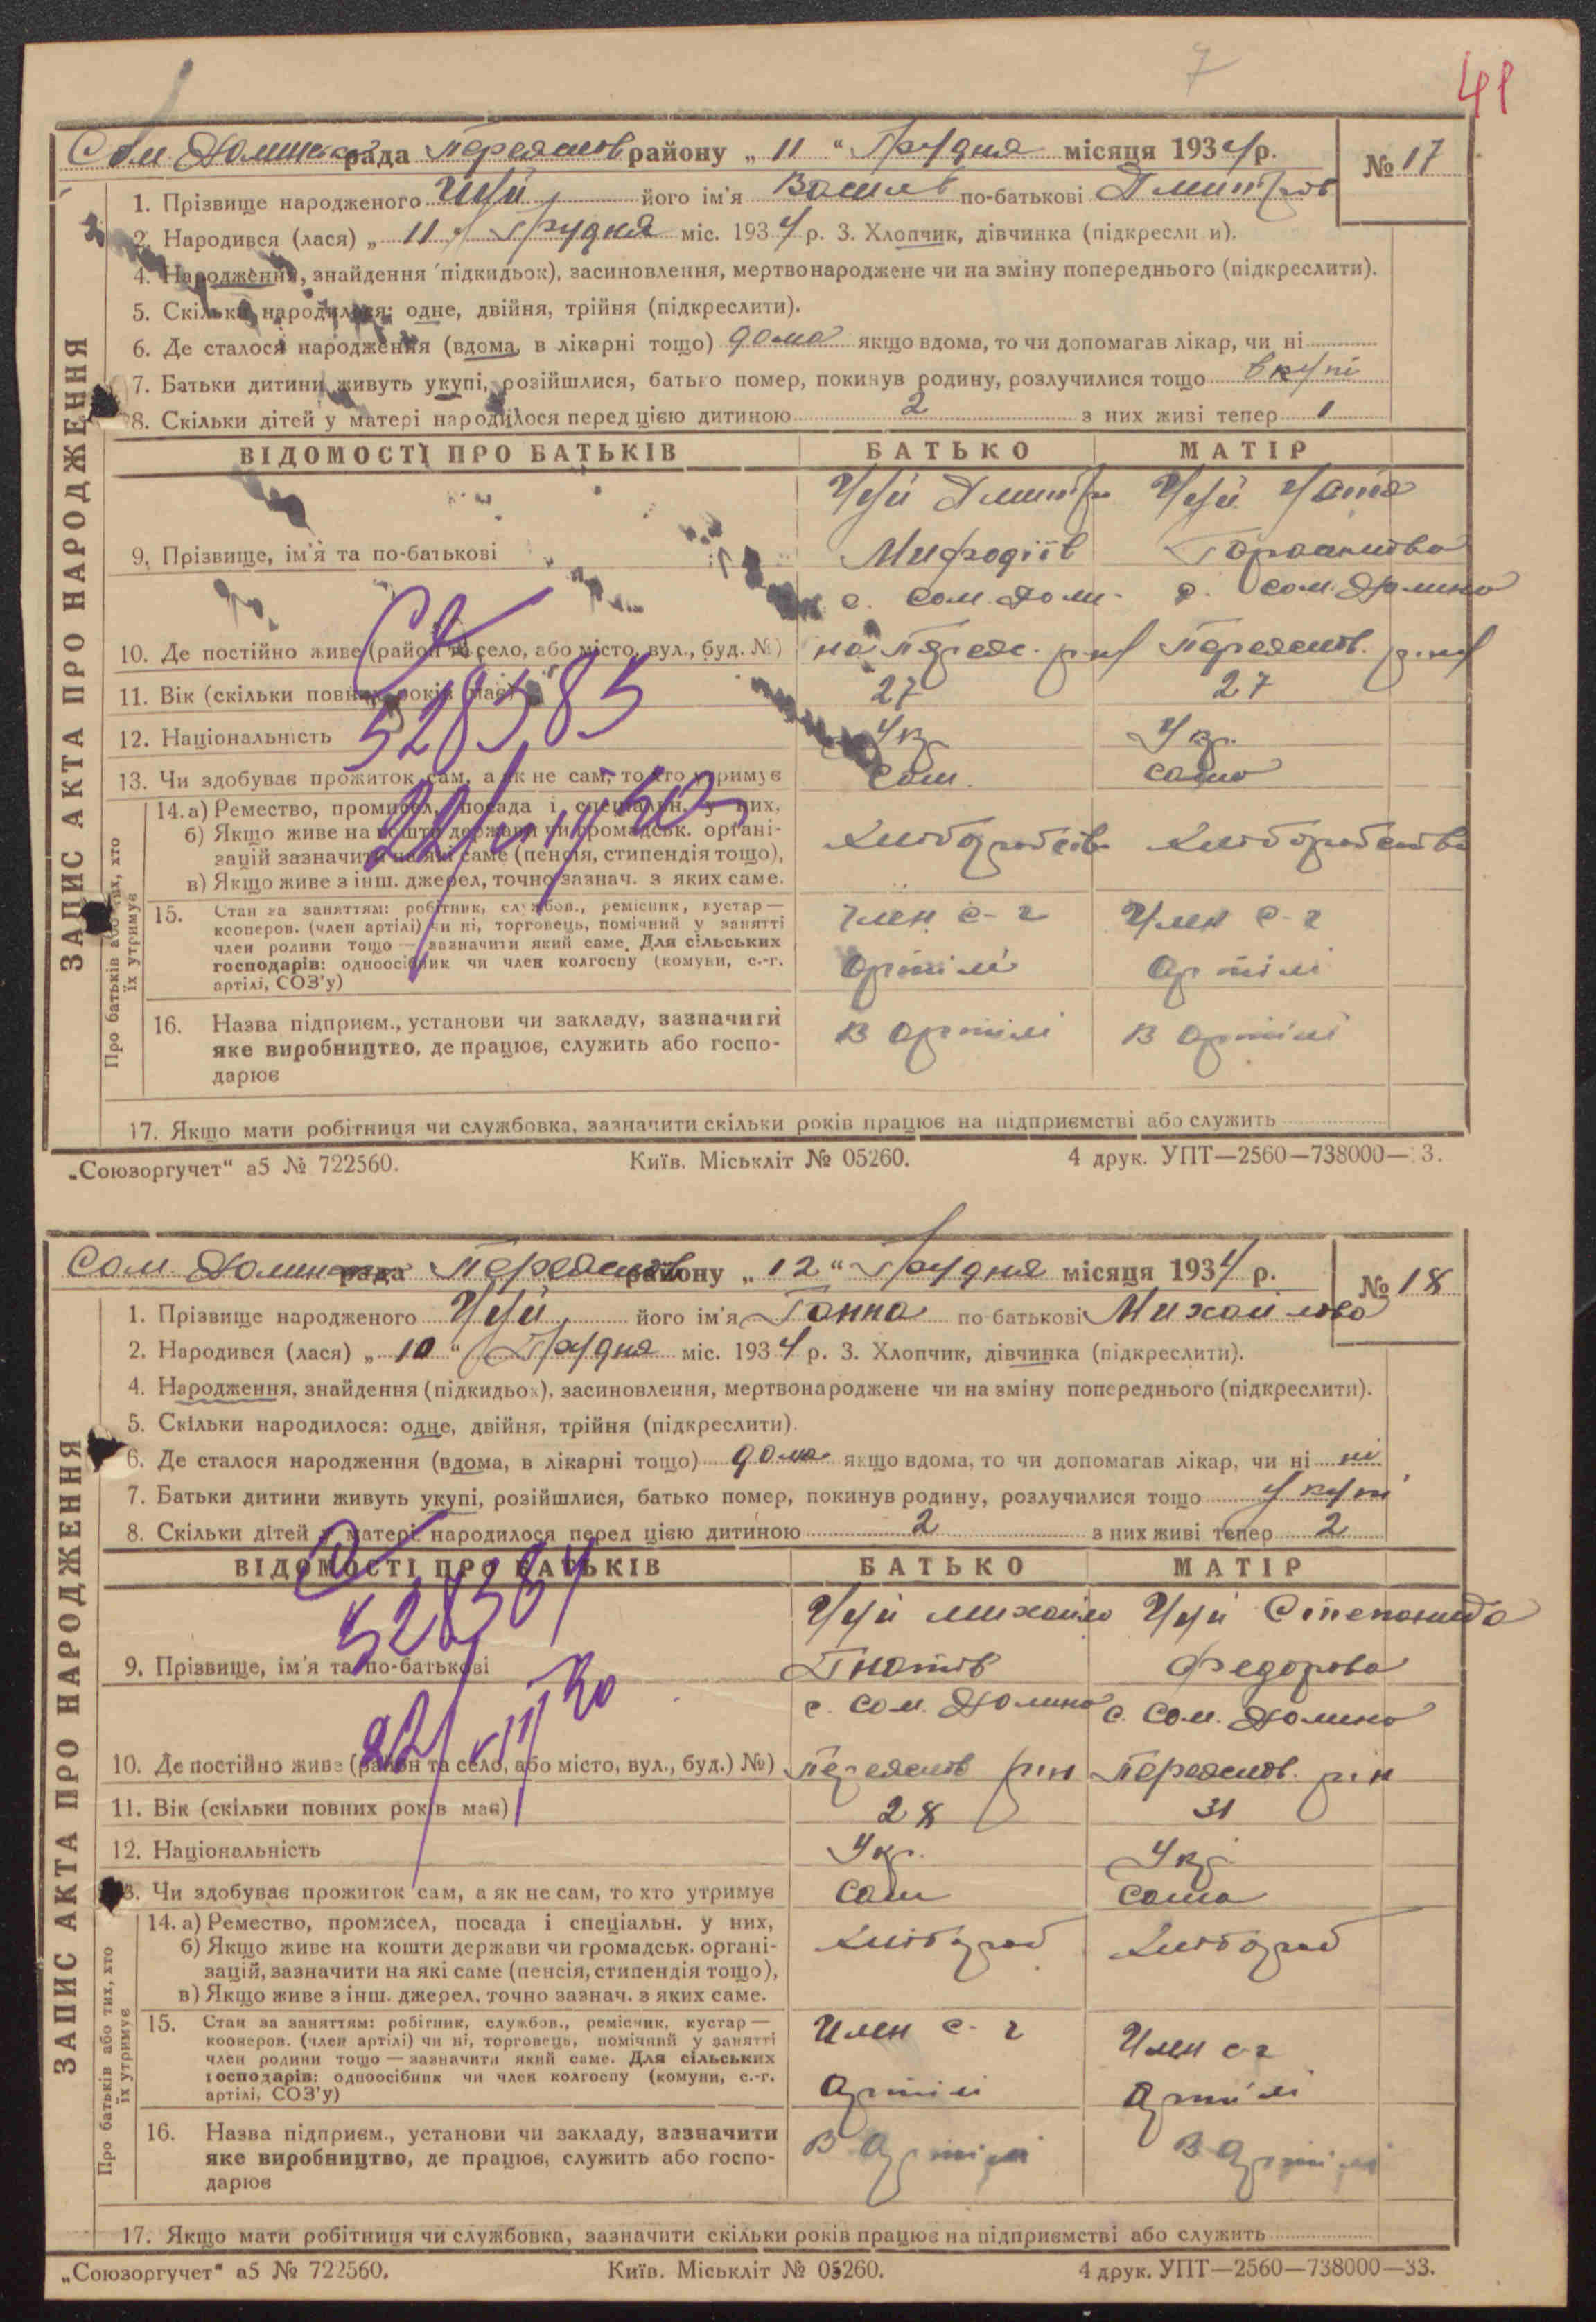 7
41
Сом. Долинська рада Переяслов району „ 11 “ Грудня місяця 1934 р.
№ 17
1. Прізвище народженого Чуй його ім'я Василь по-батькові Дмитров
2. Народився (лася) „ 11 “ Грудня міс. 1934 р. 3. Хлопчик, дівчинка (підкреслити).
4. Народження, знайдення підкидьок), засиновлення, мертвонароджене чи на зміну попереднього (підкреслити).
5. Скільки народилося: одне, двійня, трійня (підкреслити).
6. Де сталося народження (вдома, в лікарні тощо) дома якщо вдома, то чи допомагав лікар, чи ні
7. Батьки дитини живуть укупі, розійшлися, батько помер, покинув родину, розлучилися тощо вкупі
8. Скільки дітей у матері народилося перед цією дитиною 2 з них живі тепер 1
ВІДОМОСТІ ПРО БАТЬКІВ БАТЬКО МАТІР
Чуй Дмитро Чуй
9. Прізвище, ім'я та по-батькові Мифодіїв
с. Сом. Доли- с. Сом. Долина
10. Де постійно живе (район та село, або місто, вул., буд. №) на Переяс. р-н Переяслов. р-н
11. Вік (скільки повних років має) 27 27
528585
12. Національність Укр. Укр.
13. Чи здобуває прожиток сам, а як не сам, то хто утримує сам. сама
14. а) Ремество, промисел, посада і спеціальн. у них,
б) Якщо живе на кошти держави чи громадськ. органі-
зацій зазначити на які саме (пенсія, стипендія тощо),
в) Якщо живе з інш. джерел, точно зазнач. з яких саме.
Хліборобств Хліборобство
15. Стан за заняттям: робітник, службов., ремісник, кустар —
кооперов. (член артілі) чи ні, торговець, помічний у занятті
член родини тощо — зазначити який саме. Для сільських
господарів: одноосібник чи член колгоспу (комуни, с.-г.
артілі, СОЗ'у)
Член с-г Член с-г
Артілі Артілі
16. Назва підприєм., установи чи закладу, зазначити
яке виробництво, де працює, служить або госпо-
дарює
В Артілі В Артілі
17. Якщо мати робітниця чи службовка, зазначити скільки років працює на підприємстві або служить
ЗАПИС АКТА ПРО НАРОДЖЕННЯ
Про батьків або тих, хто
їх утримує
„Союзоргучет“ а5 № 722560. Київ. Міськліт № 05260. 4 друк. УПТ—2560—738000— 3.
Сом. Долинська рада Переяслов району „ 12 “ Грудня місяця 1934 р.
№ 18
1. Прізвище народженого Чуй його ім'я Ганна по батькові Михайлова
2. Народився (лася) „ 10 “ Грудня міс. 1934 р. 3. Хлопчик, дівчинка (підкреслити).
4. Народження, знайдення (підкидьок), засиновлення, мертвонароджене чи на зміну попереднього (підкреслити).
5. Скільки народилося: одне, двійня, трійня (підкреслити).
6. Де сталося народження (вдома, в лікарні тощо) дома якщо вдома, то чи допомагав лікар, чи ні ні
7. Батьки дитини живуть укупі, розійшлися, батько помер, покинув родину, розлучилися тощо укупі
8. Скільки дітей у матері народилося перед цією дитиною 2 з них живі тепер 2
ВІДОМОСТІ ПРО БАТЬКІВ БАТЬКО МАТІР
528584
Чуй Михайло Чуй Степанида
9. Прізвище, ім'я та по-батькові Гнатів Федорова
с. Сом. Долина с. Сом. Долина
10. Де постійно живе (район та село, або місто, вул., буд.) №) Переяслов р-н Переяслов. р-н
11. Вік (скільки повних років має) 28 31
12. Національність Укр. Укр.
13. Чи здобуває прожиток сам, а як не сам, то хто утримує сам сама
14. а) Ремество, промисел, посада і спеціальн. у них,
б) Якщо живе на кошти держави чи громадськ. органі-
зацій, зазначити на які саме (пенсія, стипендія тощо),
в) Якщо живе з інш. джерел, точно зазнач. з яких саме.
Хлібороб Хлібороб
15. Стан за заняттям: робітник, службов., ремісник, кустар —
кооперов. (член артілі) чи ні, торговець, помічний у занятті
член родини тощо — зазначити який саме. Для сільських
господарів: одноосібник чи член колгоспу (комуни, с.-г.
артілі, СОЗ'у)
Член с-г Член с-г
Артілі Артілі
16. Назва підприєм., установи чи закладу, зазначити
яке виробництво, де працює, служить або госпо-
дарює
В Артілі В Артілі
17. Якщо мати робітниця чи службовка, зазначити скільки років працює на підприємстві або служить
ЗАПИС АКТА ПРО НАРОДЖЕННЯ
Про батьків або тих, хто
їх утримує
„Союзоргучет“ а5 № 722560. Київ. Міськліт № 05260. 4 друк. УПТ—2560—738000—33.